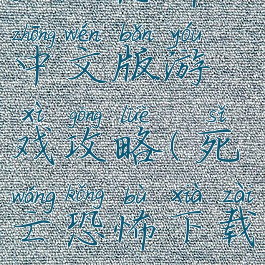 zhōng wén bǎn yóu
中文版游
xì gōng lüè sǐ
戏攻略(死
wáng kǒng bù xià zài
亡恐怖下载